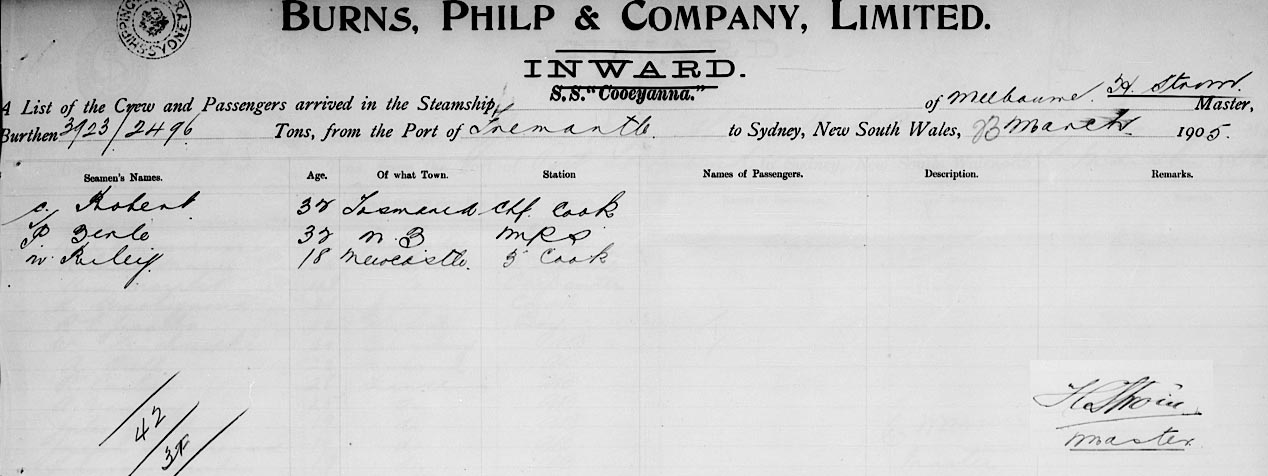 BURNS, PHILP & COMPANY, LIMITED.
INWARD.
S.S. "Cooeyanna."
A List of the Crew and Passengers arrived in the Steamship, of Melbourne. H. Master,
Burthen 3923/2496 Tons, from the Port of Fremantle to Sydney, New South Wales, March 1905.
Seamen's Names. Age. Of what Town. Station Names of Passengers. Description. Remarks.
C. Robert 32 Tasmania Chf. Cook
P 32 N Z MRS
W. Riley 18 Newcastle. 3 Cook
42
Master